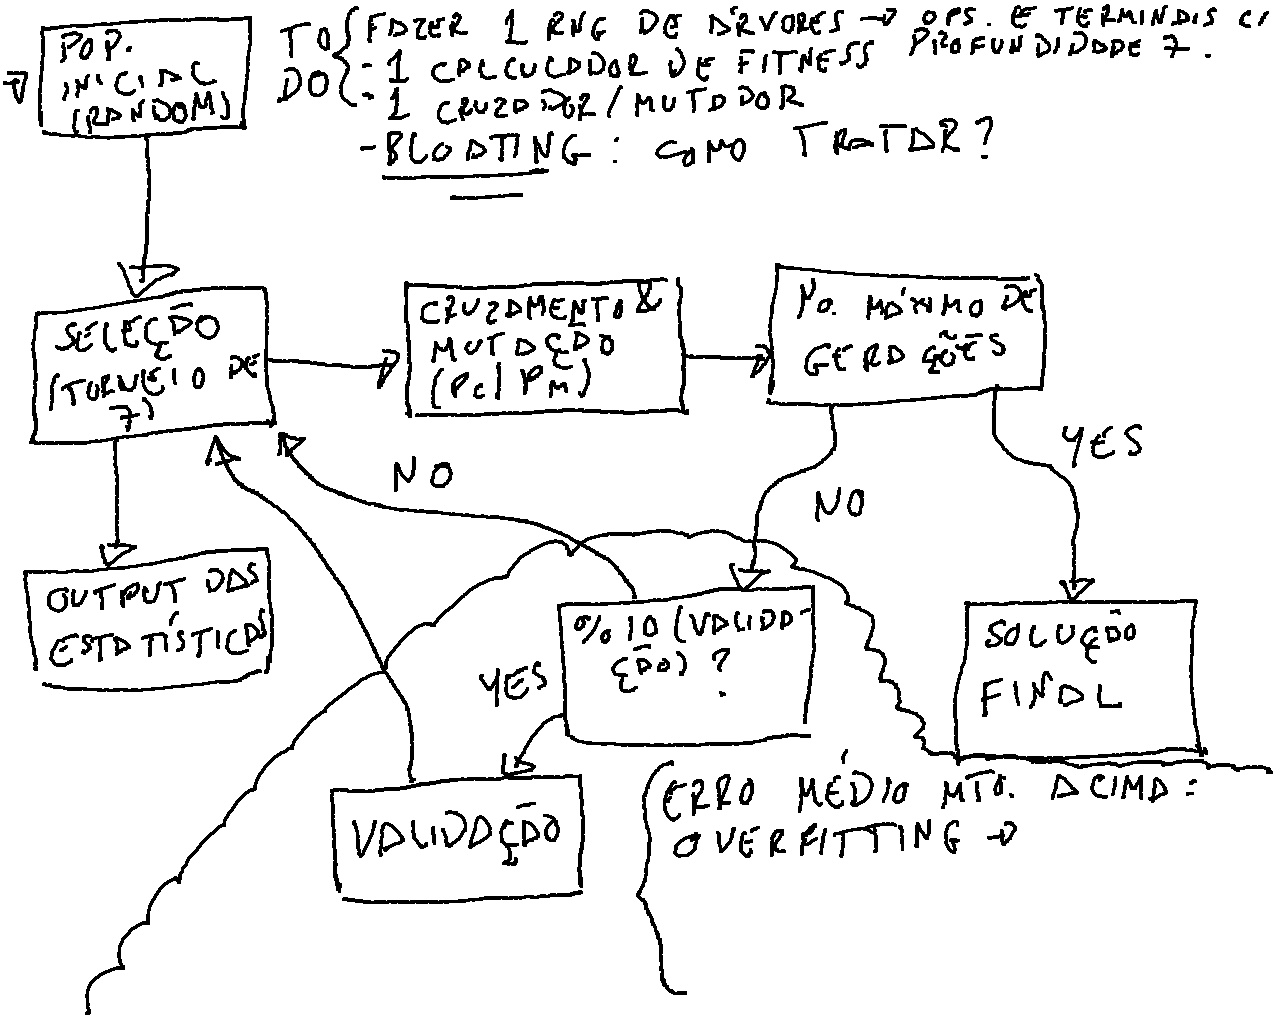 POP.
INICIAL
(RANDOM)
TO
DO
FAZER 1 RNG DE ÁRVORES → OPS. E TERMINAIS C/
PROFUNDIDADE 7.
- 1 CALCULADOR DE FITNESS
- 1 CRUZADOR/MUTADOR
- BLOATING: COMO TRATAR?
SELEÇÃO
(TORNEIO DE
7)
CRUZAMENTO &
MUTAÇÃO
(Pc | PM)
No. MÁXIMO DE
GERAÇÕES
YES
NO
NO
OUTPUT DAS
ESTATÍSTICAS
% 10 (VALIDA-
ÇÃO) ?
YES
SOLUÇÃO
FINAL
VALIDAÇÃO
ERRO MÉDIO MTO. ACIMA:
OVERFITTING →